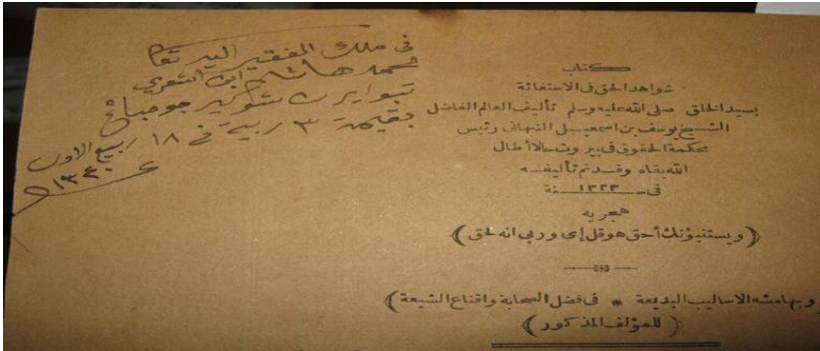 كتاب
شواهد الحق فى الاستغاثة
بسيد الخلق صلى الله عليه وسلم تأليف العالم الفاضل
الشيخ يوسف بن اسمعيل النبهانى رئيس
محكمة الحقوق فى بيروت حالا أطال
الله بقاه وقد تم تأليفه
فى سنة ١٣٢٣
هجريه
(ويستنبؤنك أحق هو قل إى وربى انه لحق)
وبهامشه الاساليب البديعة * فى فضل الصحابة واقناع الشيعة)
(للمؤلف المذكور)
فى ملك الفقير اليه تعا
محمد هاشم ابن اشعري
تبوايرڠ جومباڠ
بقيمة ٣ ربية في ١٨ ربيع الاول
١٣٤٠